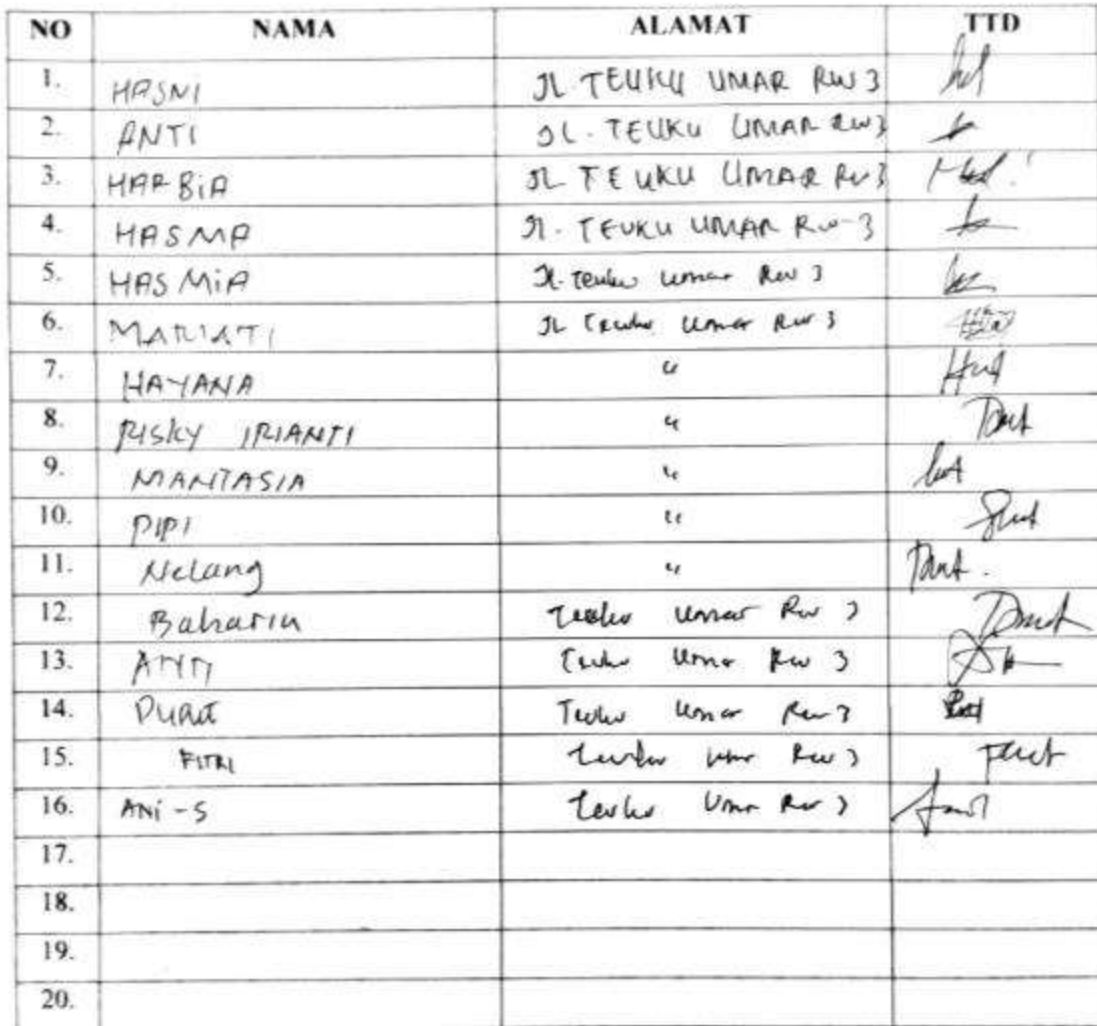 NO NAMA ALAMAT TTD
1. HASNI JL. TEUKU UMAR RW 3
2. ANTI JL. TEUKU UMAR RW 3
3. HARBIA JL TEUKU UMAR RW 3
4. HASMA JL. TEUKU UMAR RW-3
5. HASMIA JL. Teuku Umar RW 3
6. MARIATI JL Teuku Umar RW 3
7. HAYANA "
8. RISKY IRIANTI "
9. MANTASIA "
10. PIPI "
11. Nelang "
12. Baharia Teuku Umar RW 3
13. Teuku Umar RW 3
14. Teuku Umar RW 3
15. FITRI Teuku Umar RW 3
16. ANi-S Teuku Umar RW 3
17.
18.
19.
20.